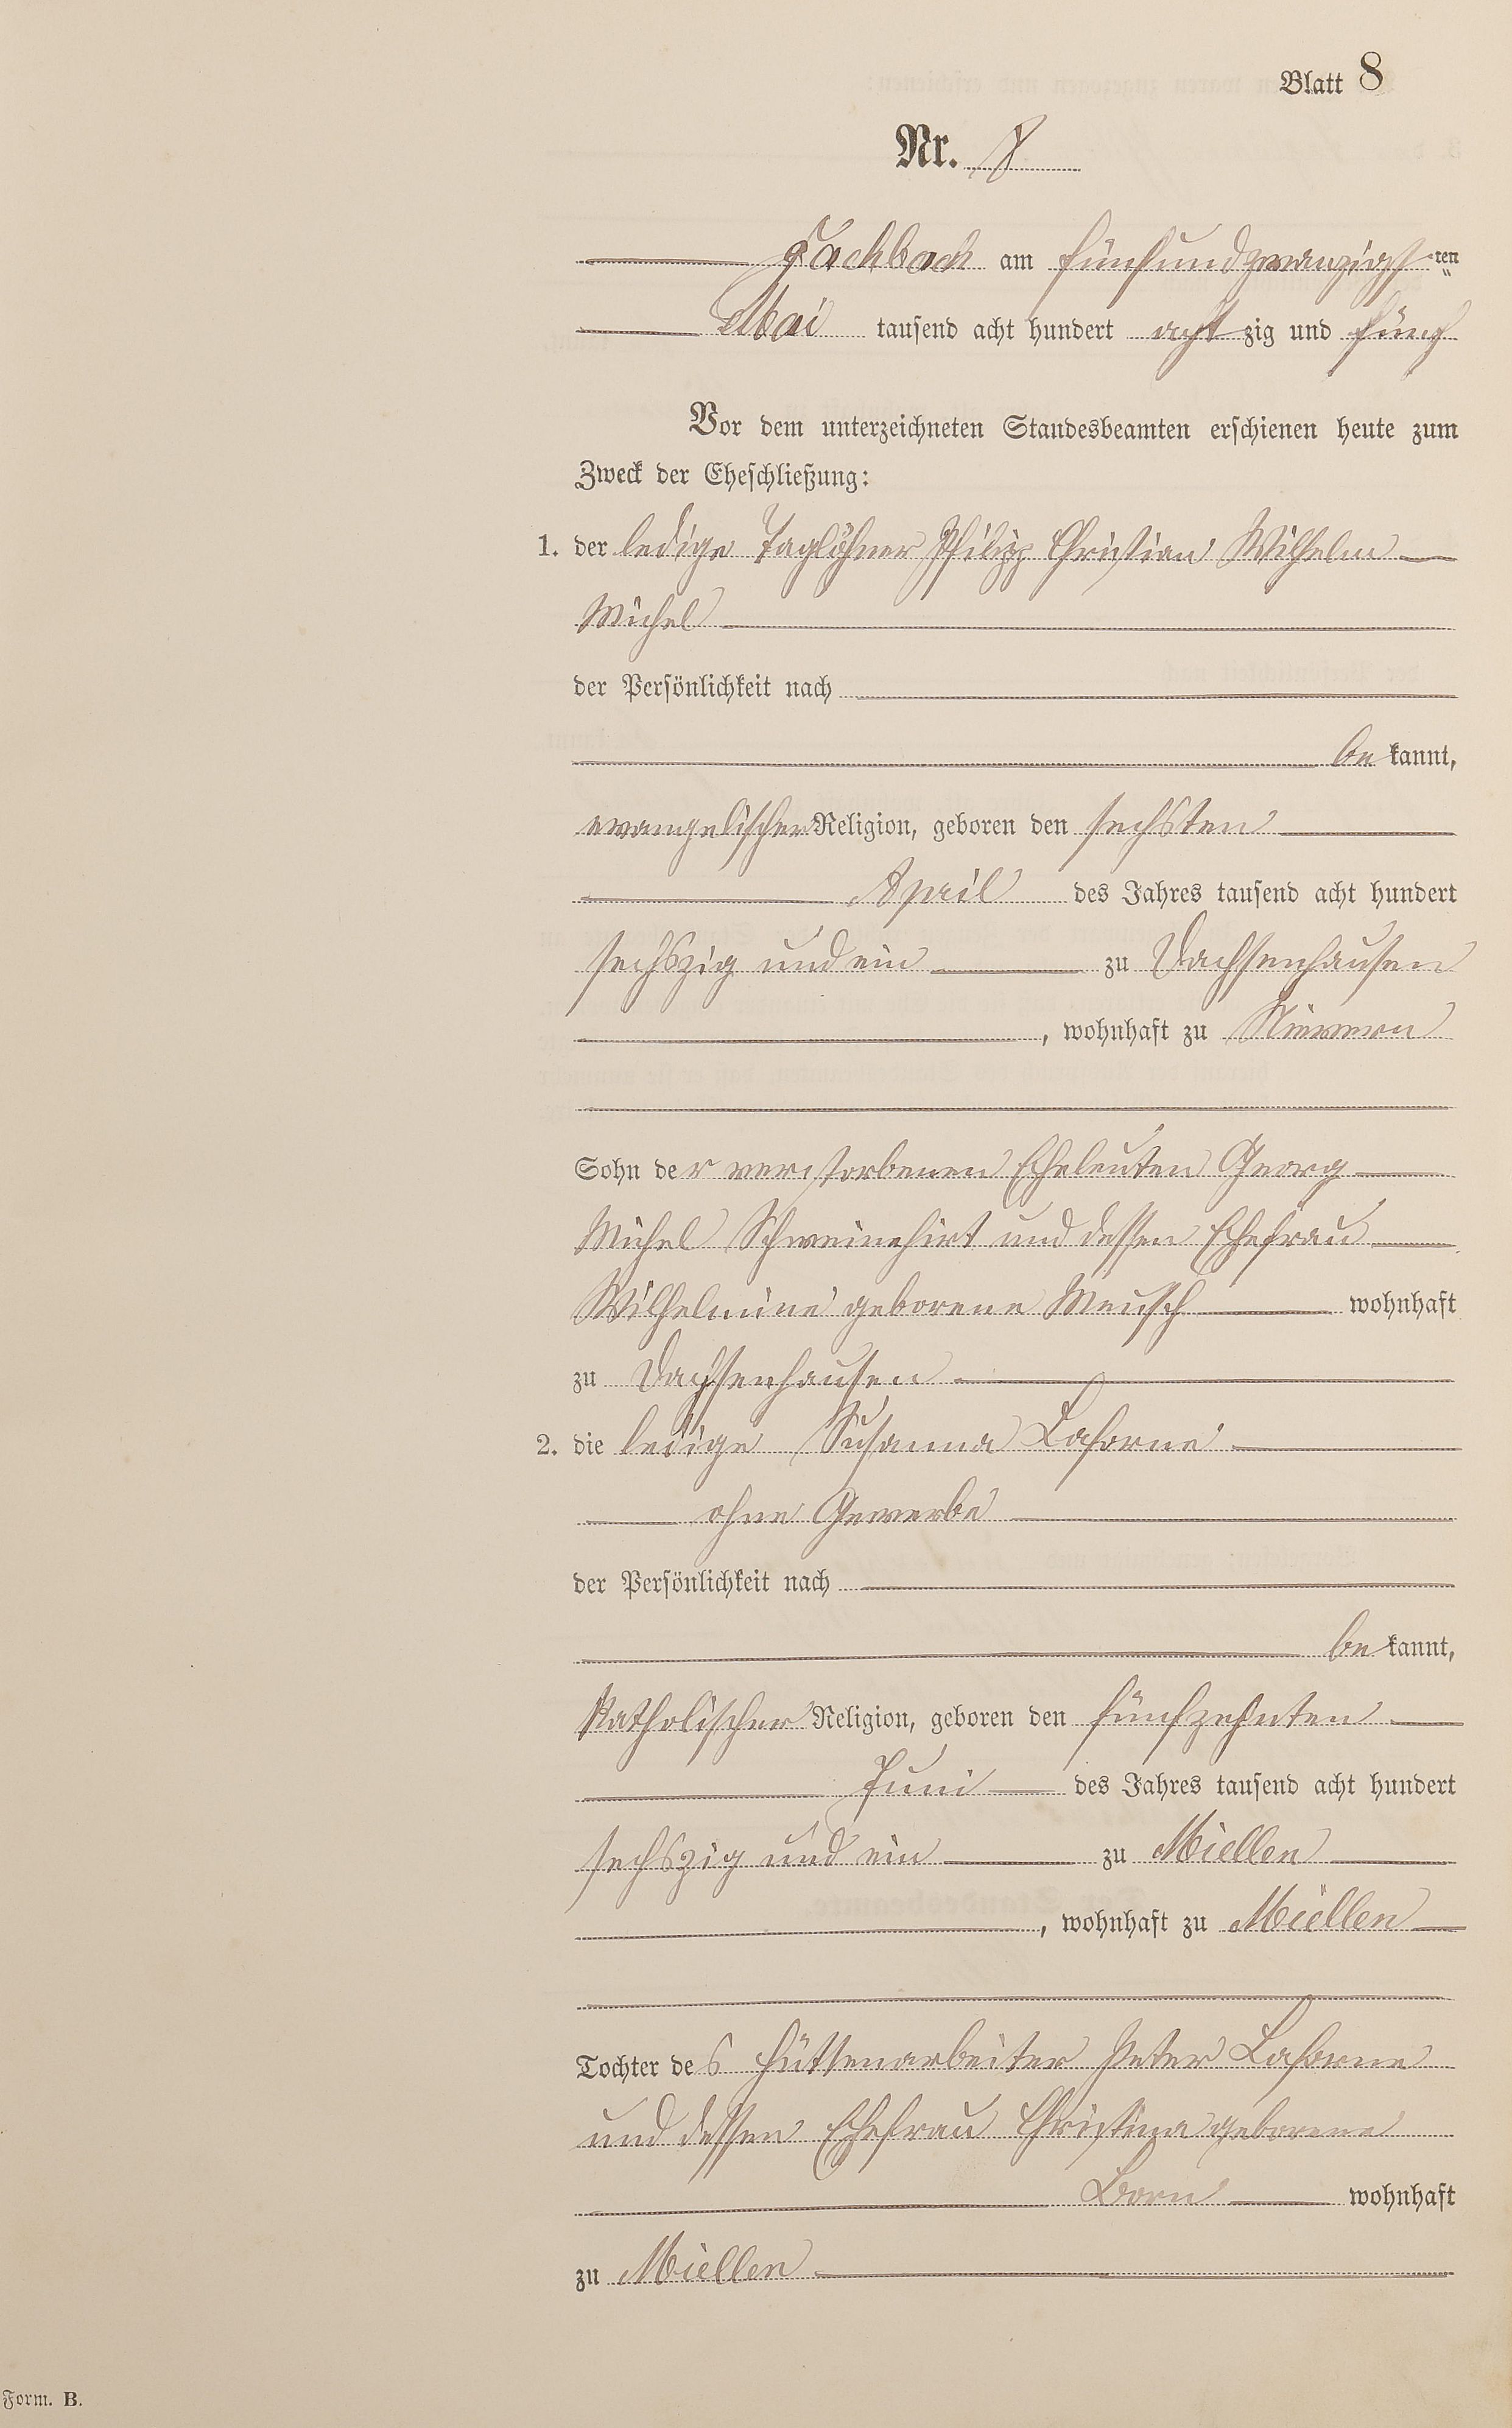 Blatt 8
Nr. 8
Fachbach am fünfundzwanzigsten
Mai tausend acht hundert achtzig und fünf
Vor dem unterzeichneten Standesbeamten erschienen heute zum
Zweck der Eheschließung:
1. der ledige Taglöhner Philipp Christian Wilhelm
Michel
der Persönlichkeit nach
be kannt,
evangelischer Religion, geboren den sechsten
April des Jahres tausend acht hundert
sechszig und ein zu Dachsenhausen
, wohnhaft zu Nievern
Sohn der verstorbenen Eheleuten Georg
Michel Schweinehirt und dessen Ehefrau
Wilhelmine geborene Meusch wohnhaft
zu Dachsenhausen
2. die ledige Susanna Laforne
ohne Gewerbe
der Persönlichkeit nach
be kannt,
katholischer Religion, geboren den fünfzehnten
Juni des Jahres tausend acht hundert
sechszig und ein zu Miellen
, wohnhaft zu Miellen
Tochter des Hüttenarbeiter Peter Laforne
und dessen Ehefrau Christina geborene
Born wohnhaft
zu Miellen
Form. B.